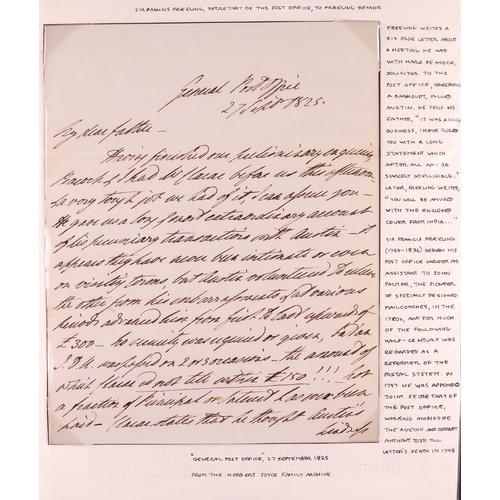 SIR FRANCIS FREELING, SECRETARY OF THE POST OFFICE, TO FREELING SENIOR
General Post Office
27 Sept 1825.
My dear father –
Having finished our preliminary enquiry
Peacock & I had before us this afternoon
a very long job we had of it, I can assure you –
He gave us a long & most extraordinary account
of his pecuniary transactions with Austin – it
appears they have never been intimate or even
on visiting terms, but Austin volunteered to
the other from his embarrassments & at various
periods advanced him from first to last upwards of
£300 – no security was required or given, but an
I.O.U. was passed on 2 or 3 occasions – the amount of
which does not exceed £150 !!! not
a fraction of Principal or Interest has ever been
paid – states that he thought Austin's
kindness
FREELING WRITES A
SIX PAGE LETTER ABOUT
A MEETING HE HAD
WITH MARK PEACOCK,
SOLICITOR TO THE
POST OFFICE, CONCERNING
A BANKRUPT, CALLED
AUSTIN. HE TELLS HIS
FATHER, "IT WAS A LONG
BUSINESS, I HAVE BORED
YOU WITH A LONG
STATEMENT WHICH
AFTER ALL MAY BE
SCARCELY INTELLIGIBLE."
LATER, FREELING WRITES,
"YOU WILL BE AMUSED
WITH THE ENCLOSED
COVER FROM INDIA..."
SIR FRANCIS FREELING
(1764-1836) BEGAN HIS
POST OFFICE CAREER AS
ASSISTANT TO JOHN
PALMER, THE PIONEER
OF SPECIALLY DESIGNED
MAILCOACHES, IN THE
1780s, AND FOR MUCH
OF THE FOLLOWING
HALF-CENTURY WAS
REGARDED AS A
REFORMER OF THE
POSTAL SYSTEM. IN
1797 HE WAS APPOINTED
JOINT SECRETARY OF
THE POST OFFICE,
WORKING ALONGSIDE
THE AGEING AND CORRUPT
ANTHONY TODD TILL
LATTER'S DEATH IN 1798
"GENERAL POST OFFICE", 27 SEPTEMBER 1825
FROM THE HERBERT JOYCE FAMILY ARCHIVE